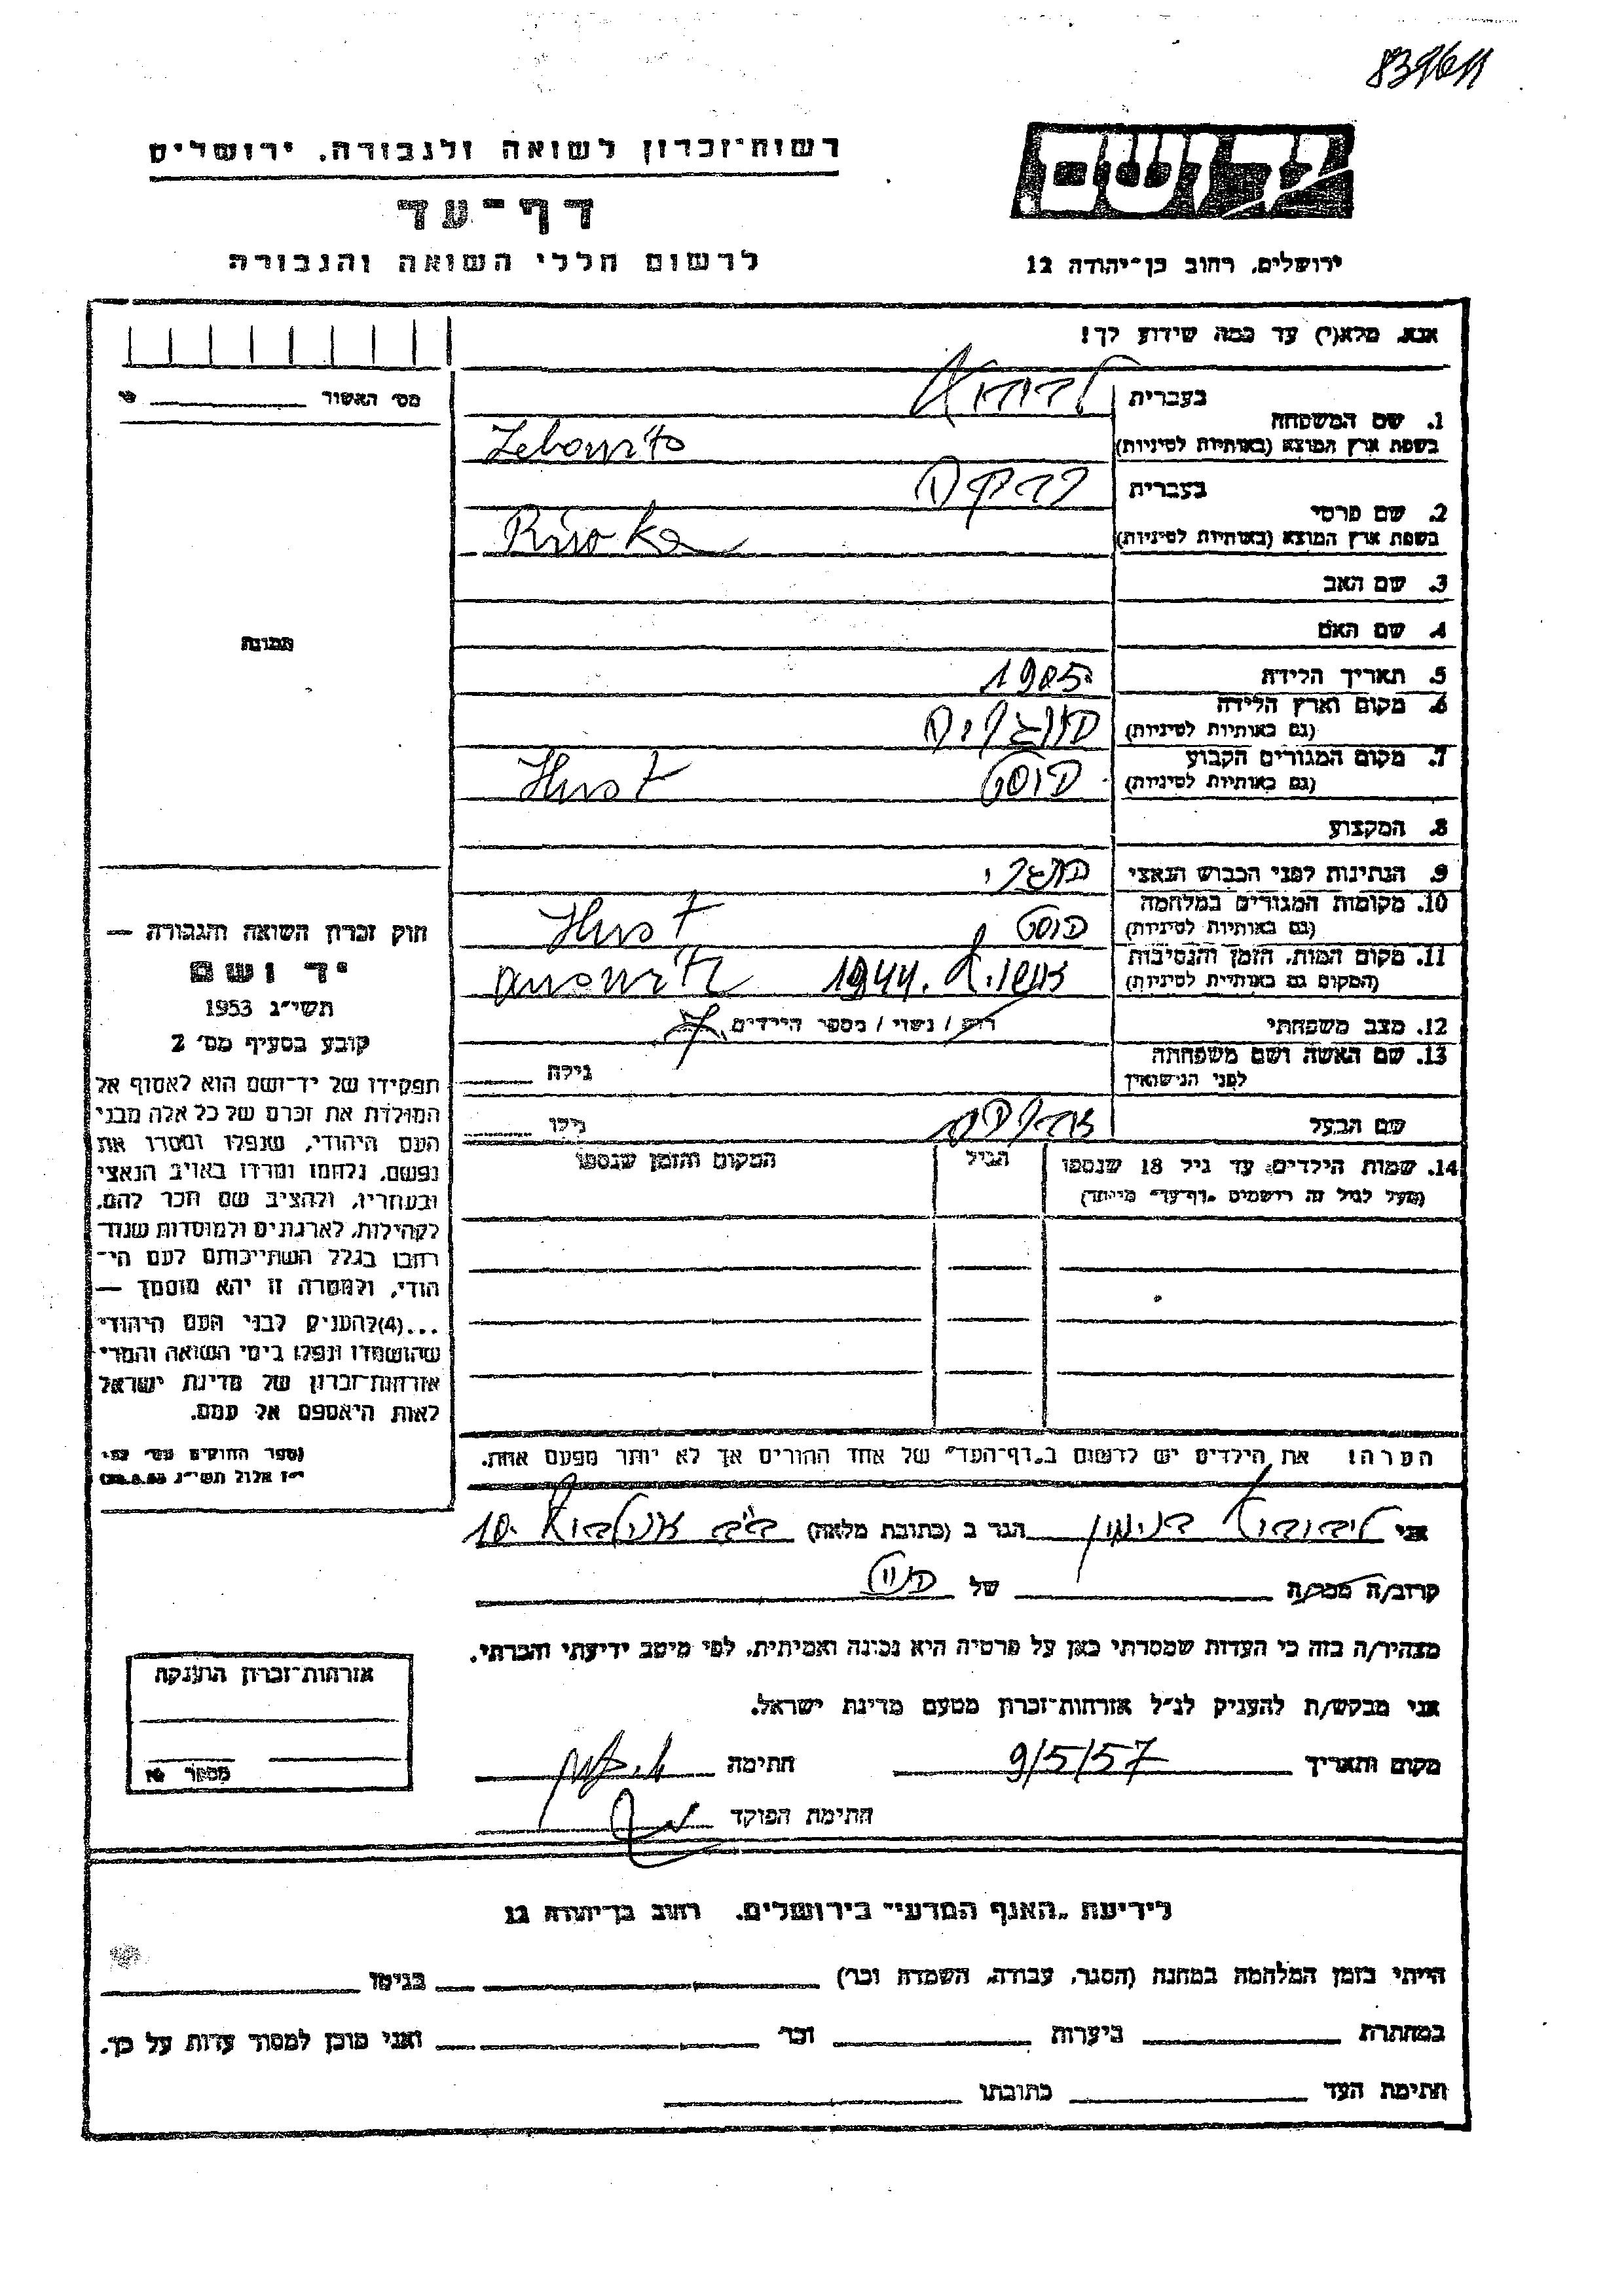 רשות־זכרון לשואה ולגבורה, ירושלים
דף־עד
לרשום חללי השואה והגבורה
יד ושם
ירושלים, רחוב בן־יהודה 12
אנא, מלא(י) עד כמה שידוע לך!
מס' האשור
1. שם המשפחה
בעברית
בשפת ארץ המוצא (באותיות לטיניות) Lebowits
2. שם פרטי
בעברית רבקה
בשפת ארץ המוצא (באותיות לטיניות) Riwka
3. שם האב
4. שם האם
5. תאריך הלידה 1905
6. מקום וארץ הלידה
(גם באותיות לטיניות) הונגריה
7. מקום המגורים הקבוע
(גם באותיות לטיניות) הוסט Hust
8. המקצוע
9. הנתינות לפני הכבוש הנאצי הונגרי
10. מקומות המגורים במלחמה
(גם באותיות לטיניות) הוסט Hust
11. מקום המות, הזמן והנסיבות
(המקום גם באותיות לטיניות) 1944
12. מצב משפחתי רווק / נשוי / מספר הילדים
13. שם האשה ושם משפחתה
לפני הנישואין
גילה
שם הבעל אברהם גילו
14. שמות הילדים עד גיל 18 שנספו
(מעל לגיל זה רושמים "דף־עד" מיוחד)
הגיל
המקום והזמן שנספו
הערה: את הילדים יש לרשום ב"דף־העד" של אחד ההורים אך לא יותר מפעם אחת.
תמונה
חוק זכרון השואה והגבורה —
יד ושם
תשי"ג 1953
קובע בסעיף מס' 2
תפקידו של יד־ושם הוא לאסוף אל
המולדת את זכרם של כל אלה מבני
העם היהודי, שנפלו ומסרו את
נפשם, נלחמו ומרדו באויב הנאצי
ובעוזריו, ולהציב שם וזכר להם,
לקהילות, לארגונים ולמוסדות שנח־
רבו בגלל השתייכותם לעם הי־
הודי, ולמטרה זו יהא מוסמך —
...(4)להעניק לבני העם היהודי
שהושמדו ונפלו בימי השואה והמרי
אזרחות־זכרון של מדינת ישראל
לאות היאספם אל עמם.
אני ליבוביץ בנימין הגר ב (כתובת מלאה) 10
קרוב/ה מכר/ה של
מצהיר/ה בזה כי העדות שמסרתי כאן על פרטיה היא נכונה ואמיתית, לפי מיטב ידיעתי והכרתי.
אני מבקש/ת להעניק לנ"ל אזרחות־זכרון מטעם מדינת ישראל.
מקום ותאריך 9/5/57 חתימה
חתימת הפוקד
אזרחות־זכרון הוענקה
מספר
לידיעת "האגף המדעי" בירושלים, רחוב בן־יהודה 12
הייתי בזמן המלחמה במחנה (הסגר, עבודה, השמדה וכו') בגיטו
במחתרת ביערות וכו' ואני מוכן למסור עדות על כך.
חתימת העד כתובתו